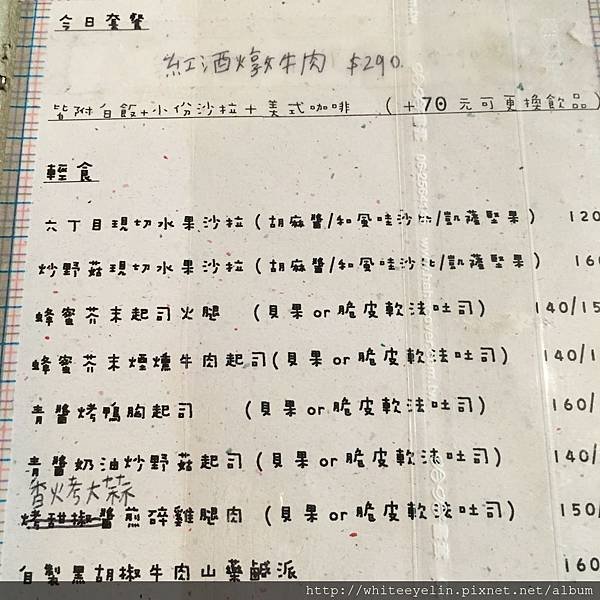 今日套餐
紅酒燉牛肉 $290
皆附白飯+小份沙拉+美式咖啡 (+70元可更換飲品)
輕食
六丁目現切水果沙拉(胡麻醬/和風哇沙比/凱薩堅果) 120
炒野菇現切水果沙拉(胡麻醬/和風哇沙比/凱薩堅果) 160
蜂蜜芥末起司火腿 (貝果or脆皮軟法吐司) 140/15
蜂蜜芥末煙燻牛肉起司(貝果or脆皮軟法吐司) 140/1
青醬烤鴨胸起司 (貝果or脆皮軟法吐司) 160/
青醬奶油炒野菇起司(貝果or脆皮軟法吐司) 140/
香烤大蒜
烤甜椒醬煎碎雞腿肉 (貝果or脆皮軟法吐司) 150/
自製黑胡椒牛肉山藥鹹派 160
http://whiteeyelin.pixnet.net/album